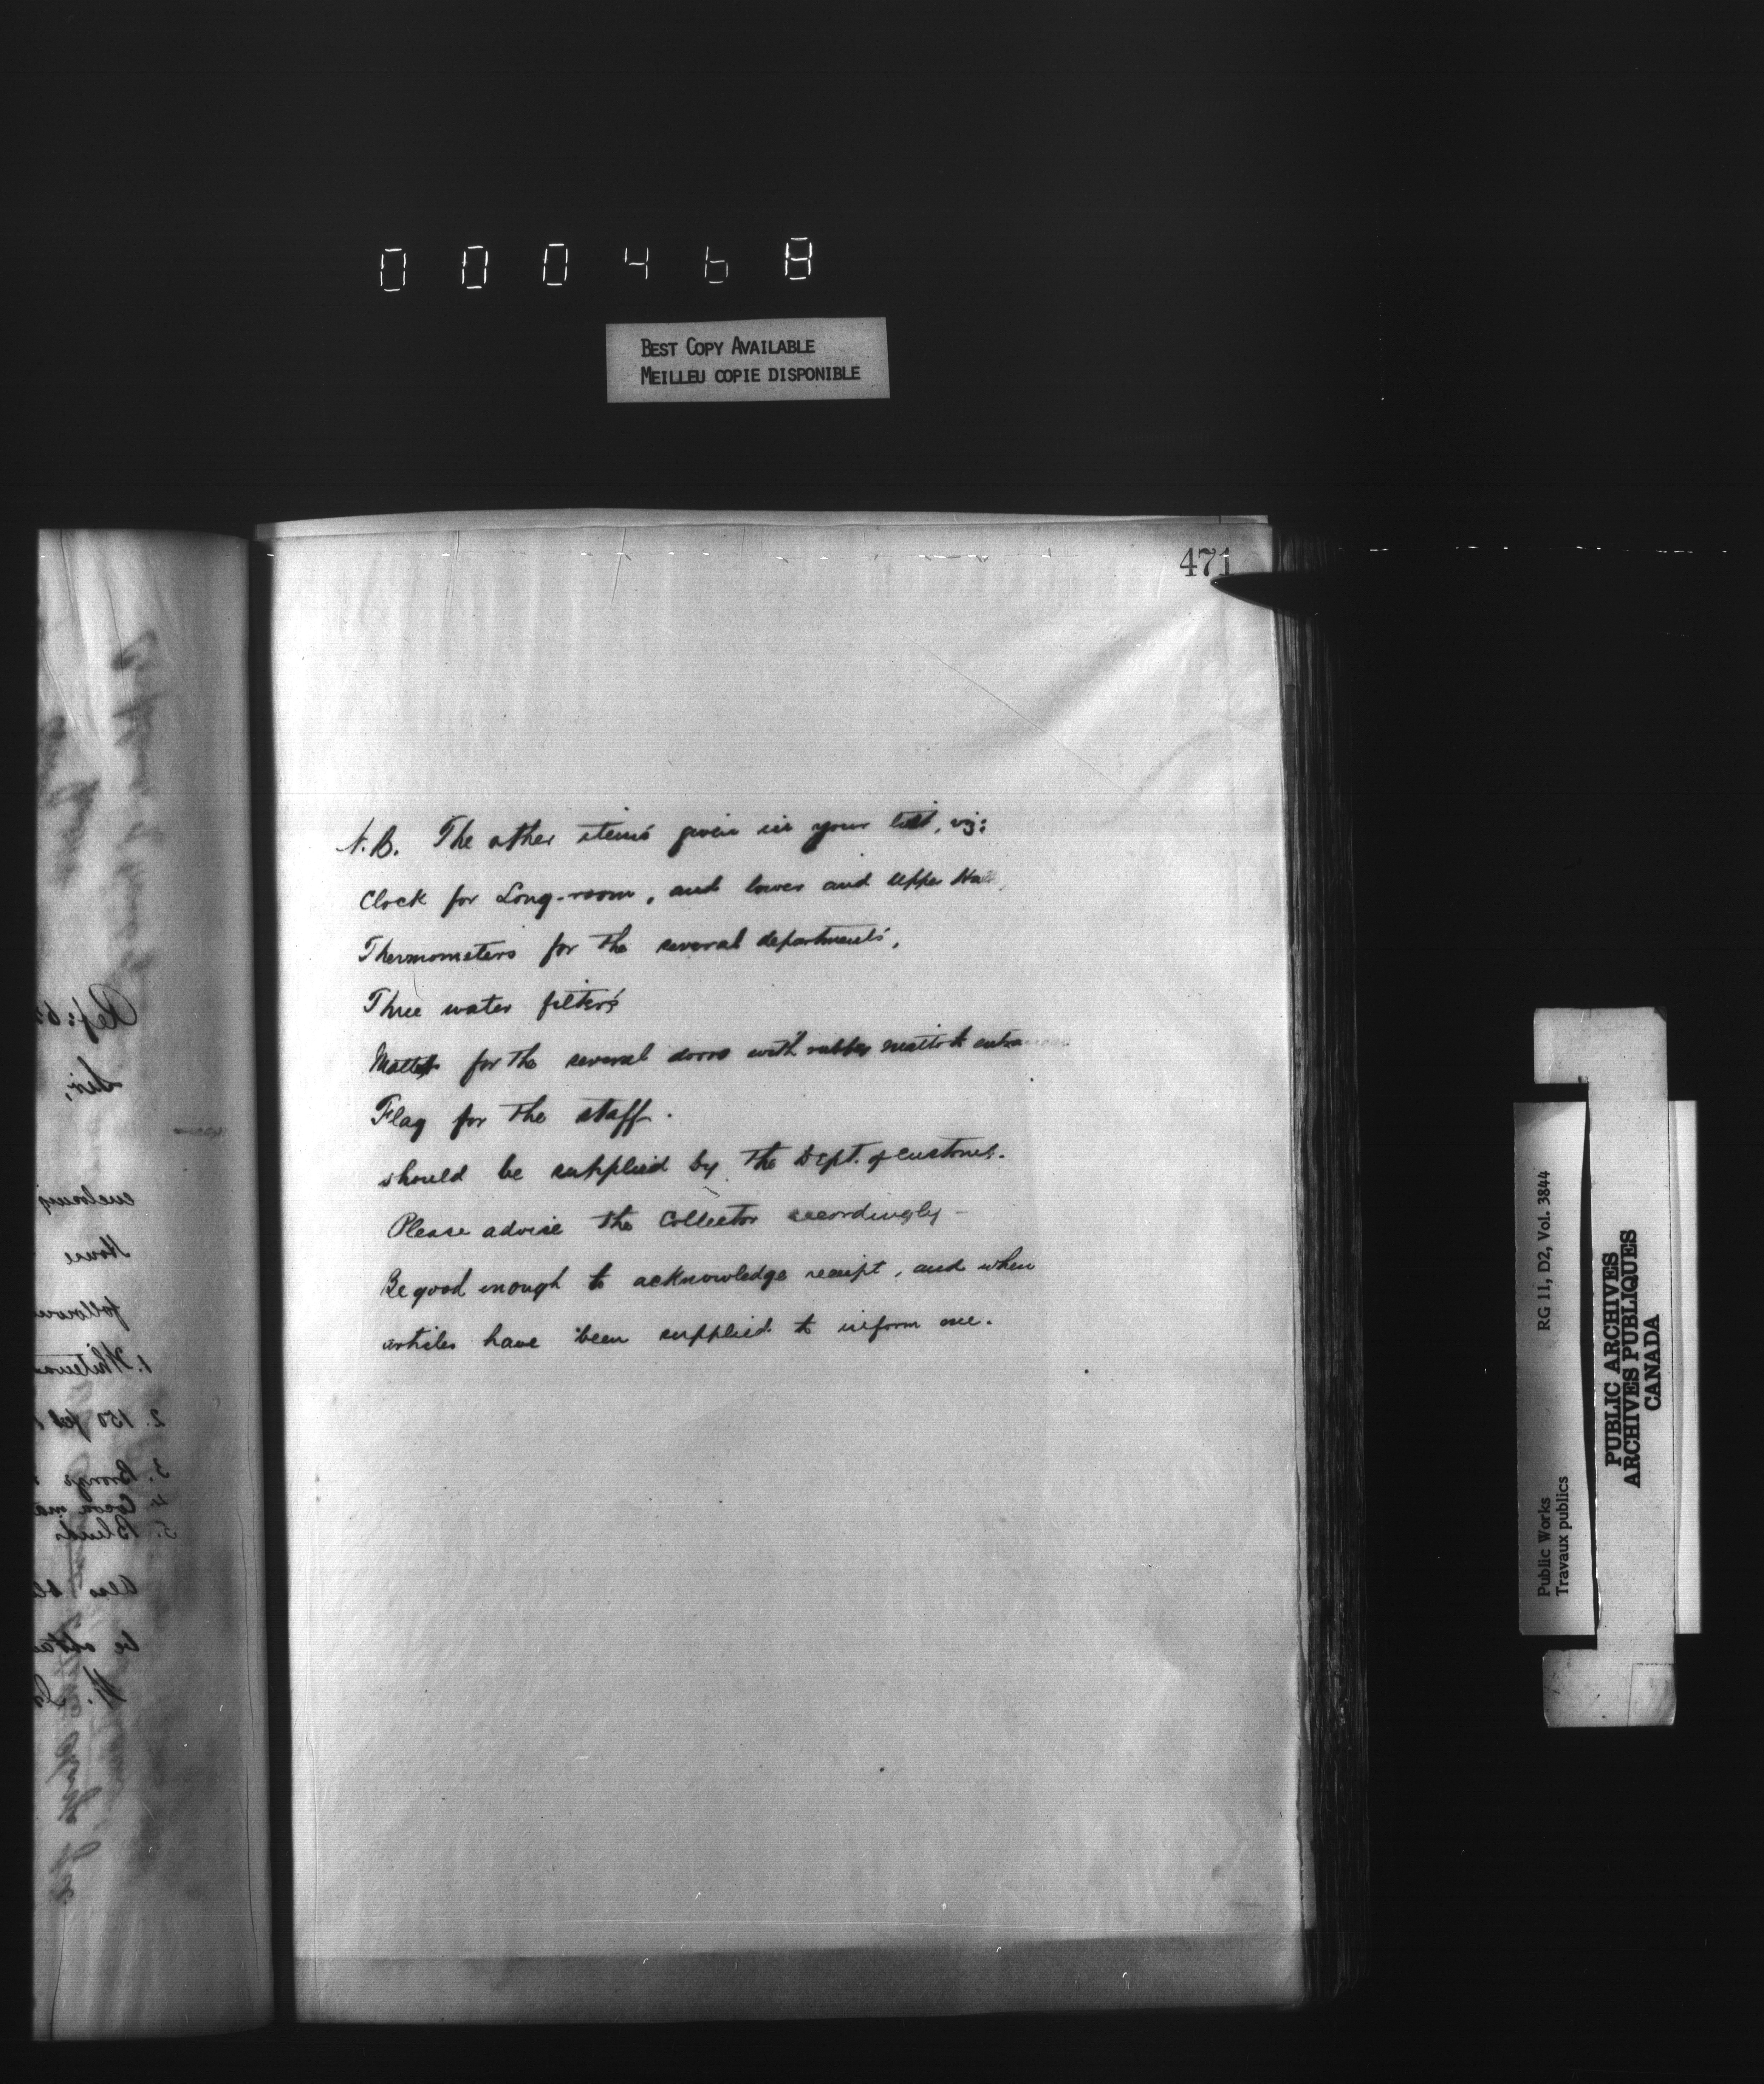 000468
BEST COPY AVAILABLE
MEILLEU COPIE DISPONIBLE
471
N.B. The other items given in your list, viz:
Clock for Long-room, and lower and upper Halls,
Thermometers for the several departments,
Three water filters
for the several doors with rubber
Flag for the staff.
should be supplied by the Dept. of Customs.
Please advise the Collector accordingly –
Be good enough to acknowledge receipt, and when
articles have been supplied to inform me.
Ref:
Sir,
enclosing
House
1.
2. 150
3. Bronze
4. Cocoa
5. Blinds
Also
be
RG 11, D2, Vol. 3844
Public Works
Travaux publics
PUBLIC ARCHIVES
ARCHIVES PUBLIQUES
CANADA